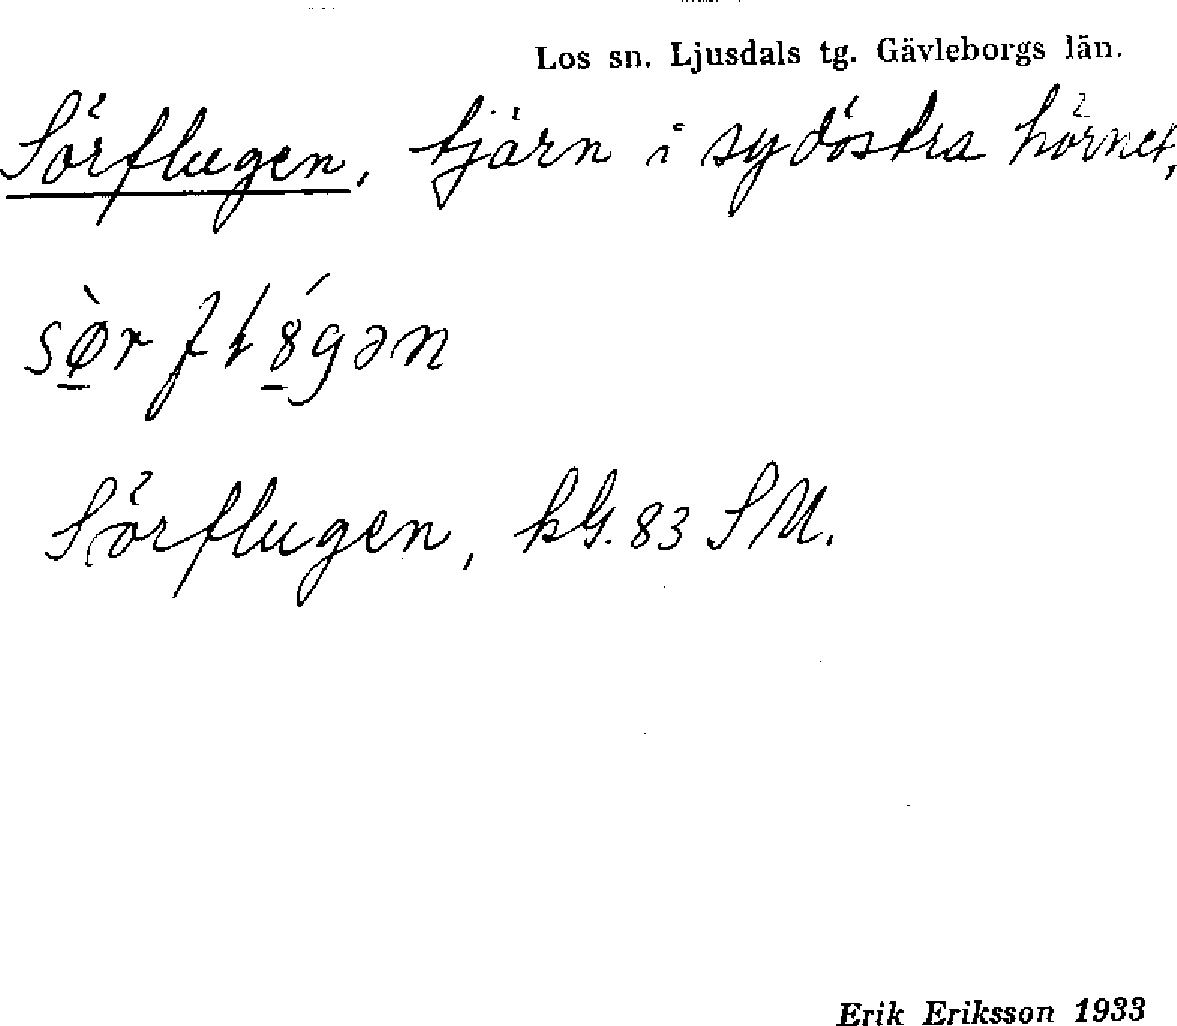 Los sn. Ljusdals tg. Gävleborgs län.
Sörflugen, tjärn i sydöstra hörnet,
Sörflugen, kG. 83 SM.
Erik Eriksson 1933